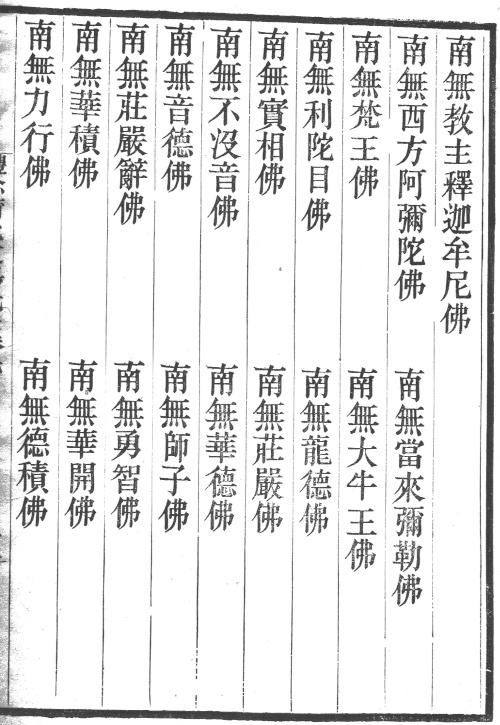 南無教主釋迦牟尼佛
南無西方阿彌陀佛　南無當來彌勒佛
南無梵王佛　南無大牛王佛
南無利陀目佛　南無龍德佛
南無實相佛　南無莊嚴佛
南無不沒音佛　南無華德佛
南無音德佛　南無師子佛
南無莊嚴辭佛　南無勇智佛
南無華積佛　南無華開佛
南無力行佛　南無德積佛